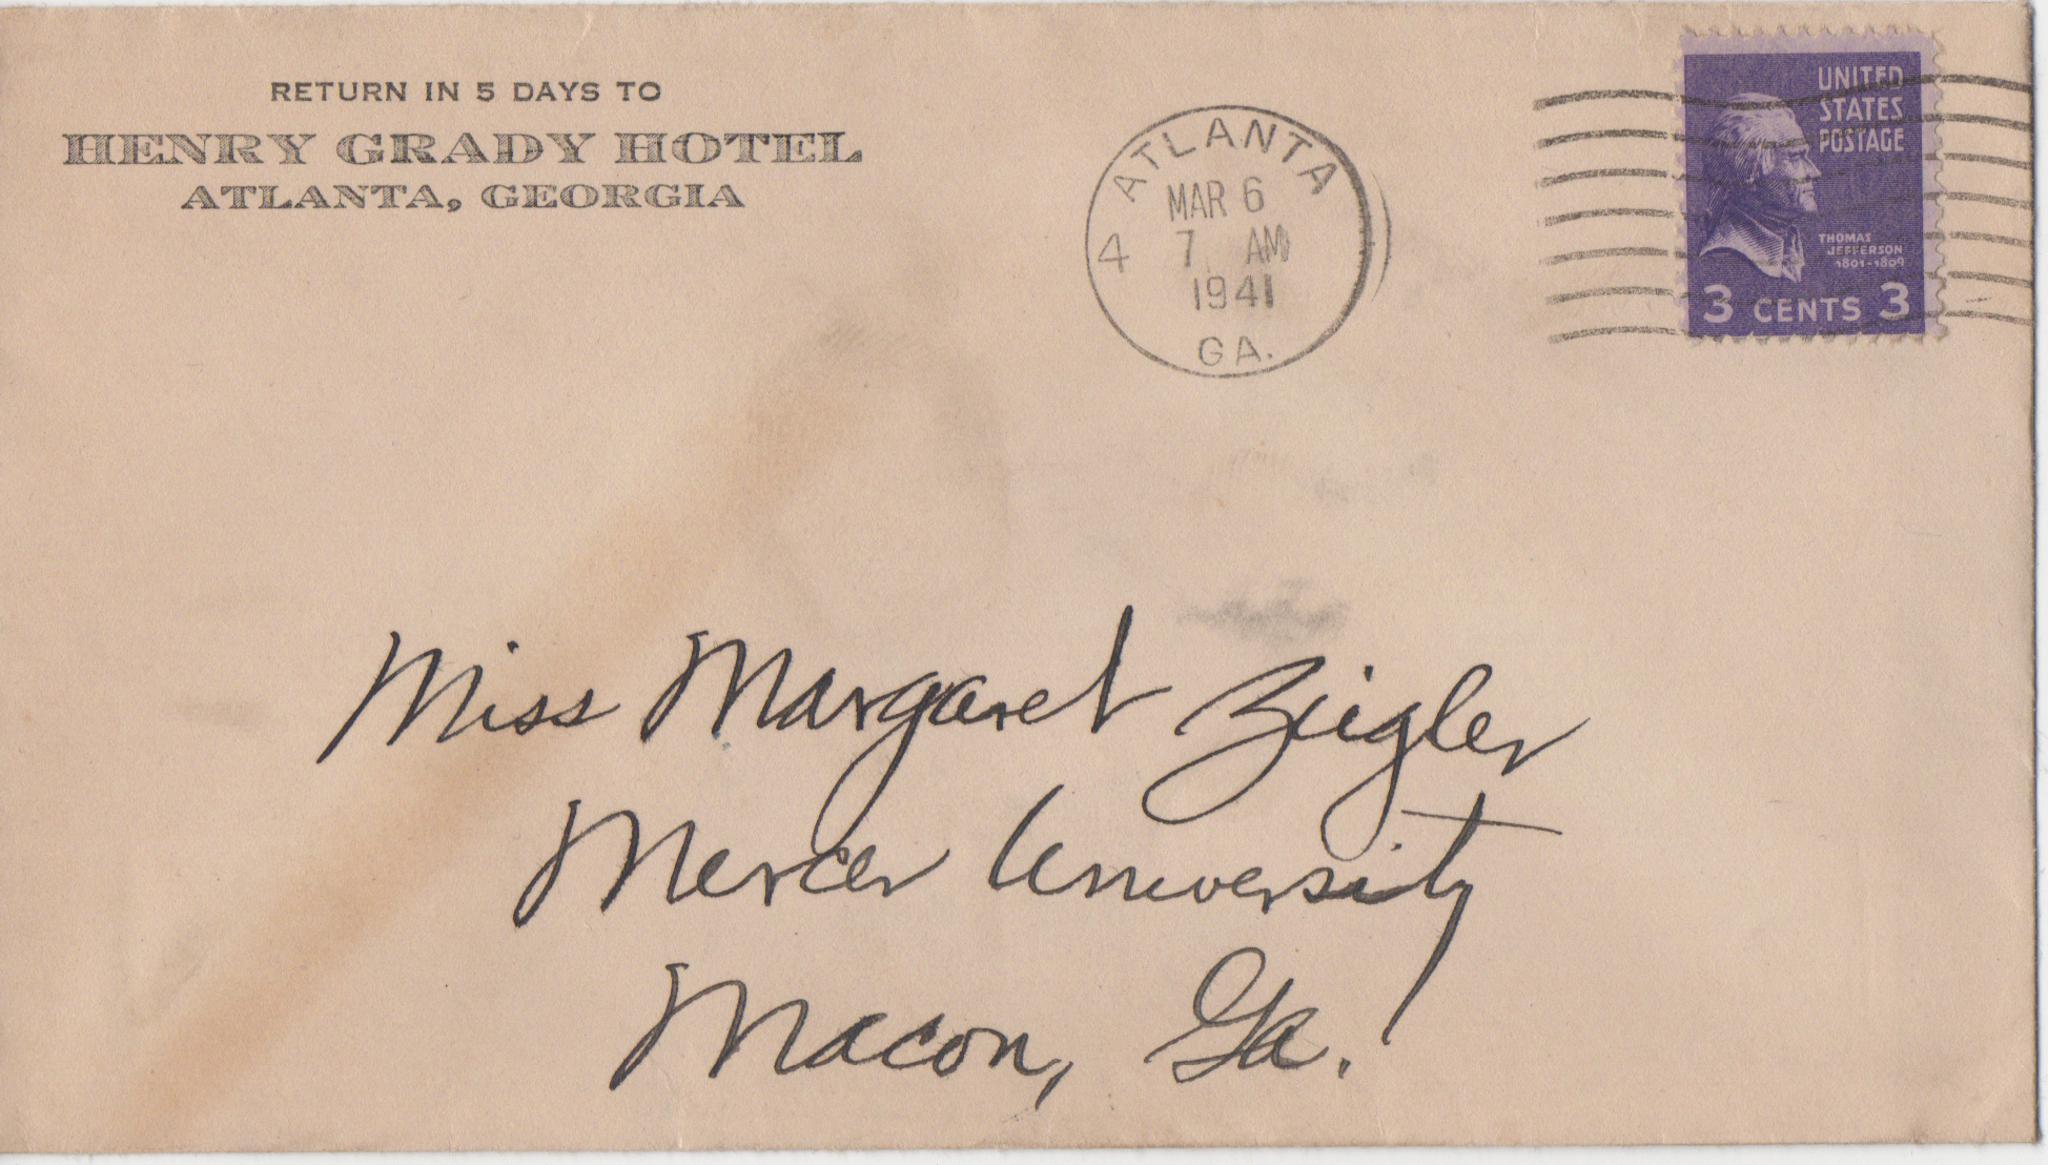 RETURN IN 5 DAYS TO
HENRY GRADY HOTEL
ATLANTA, GEORGIA
4 ATLANTA
MAR 6
7 AM
1941
GA.
UNITED
STATES
POSTAGE
THOMAS
JEFFERSON
1801-1809
3 CENTS 3
Miss Margaret Zeigler
Mercer University
Macon, Ga.